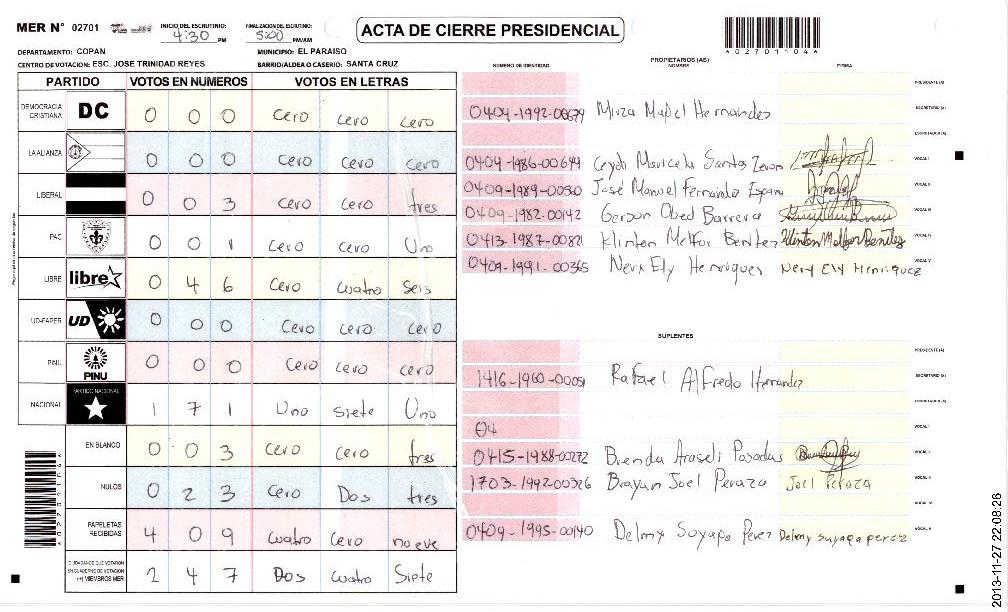 MER N° 02701
INICIO DEL ESCRUTINIO: 4:30 PM
FINALIZACION DEL ESCRUTINIO: 5:00 PM/AM
ACTA DE CIERRE PRESIDENCIAL
*02701104*
DEPARTAMENTO: COPAN
MUNICIPIO: EL PARAISO
CENTRO DE VOTACION: ESC. JOSE TRINIDAD REYES
BARRIO/ALDEA O CASERIO: SANTA CRUZ
PARTIDO VOTOS EN NUMEROS VOTOS EN LETRAS
DEMOCRACIA CRISTIANA DC 0 0 0 Cero cero cero
LA ALIANZA 0 0 0 cero cero cero
LIBERAL 0 0 3 cero cero tres
PAC 0 0 1 cero cero Uno
LIBRE libre 0 4 6 cero cuatro seis
UD-FAPER UD 0 0 0 cero cero cero
PINU PINU 0 0 0 cero cero cero
NACIONAL PARTIDO NACIONAL 1 7 1 Uno siete Uno
EN BLANCO 0 0 3 cero cero tres
NULOS 0 2 3 cero Dos tres
PAPELETAS RECIBIDAS 4 0 9 cuatro cero nueve
CIUDADANOS QUE VOTARON EN CUADERNO DE VOTACION (+) MIEMBROS MER 2 4 7 Dos cuatro Siete
*02701104*
NUMERO DE IDENTIDAD
PROPIETARIOS (AS)
NOMBRE
FIRMA
PRESIDENTE (A)
0404-1992-00679 Mirza Mabel Hernandez SECRETARIO (A)
ESCRUTADOR (A)
0409-1986-00644 Ceydi Maricela Santos VOCAL I
0409-1989-00560 José Manuel Fernandez VOCAL II
0409-1982-00142 Gerson Obed Barrera VOCAL III
0413-1987-00821 Klinton Melfor Benitez Klinton Melfor Benitez VOCAL IV
0409-1991-00365 Nery Ely Henriquez Nery Ely Henriquez VOCAL V
SUPLENTES
PRESIDENTE (A)
1416-1960-00051 Rafael Alfredo Hernandez SECRETARIO (A)
ESCRUTADOR (A)
04 VOCAL I
0415-1988-00272 Brenda Araseli Posadas VOCAL II
1703-1992-00326 Brayan Joel Peraza Joel Peraza VOCAL III
VOCAL IV
0409-1995-00140 Delmy Suyapa Perez Delmy suyapa perez VOCAL V
2013-11-27 22:08:26